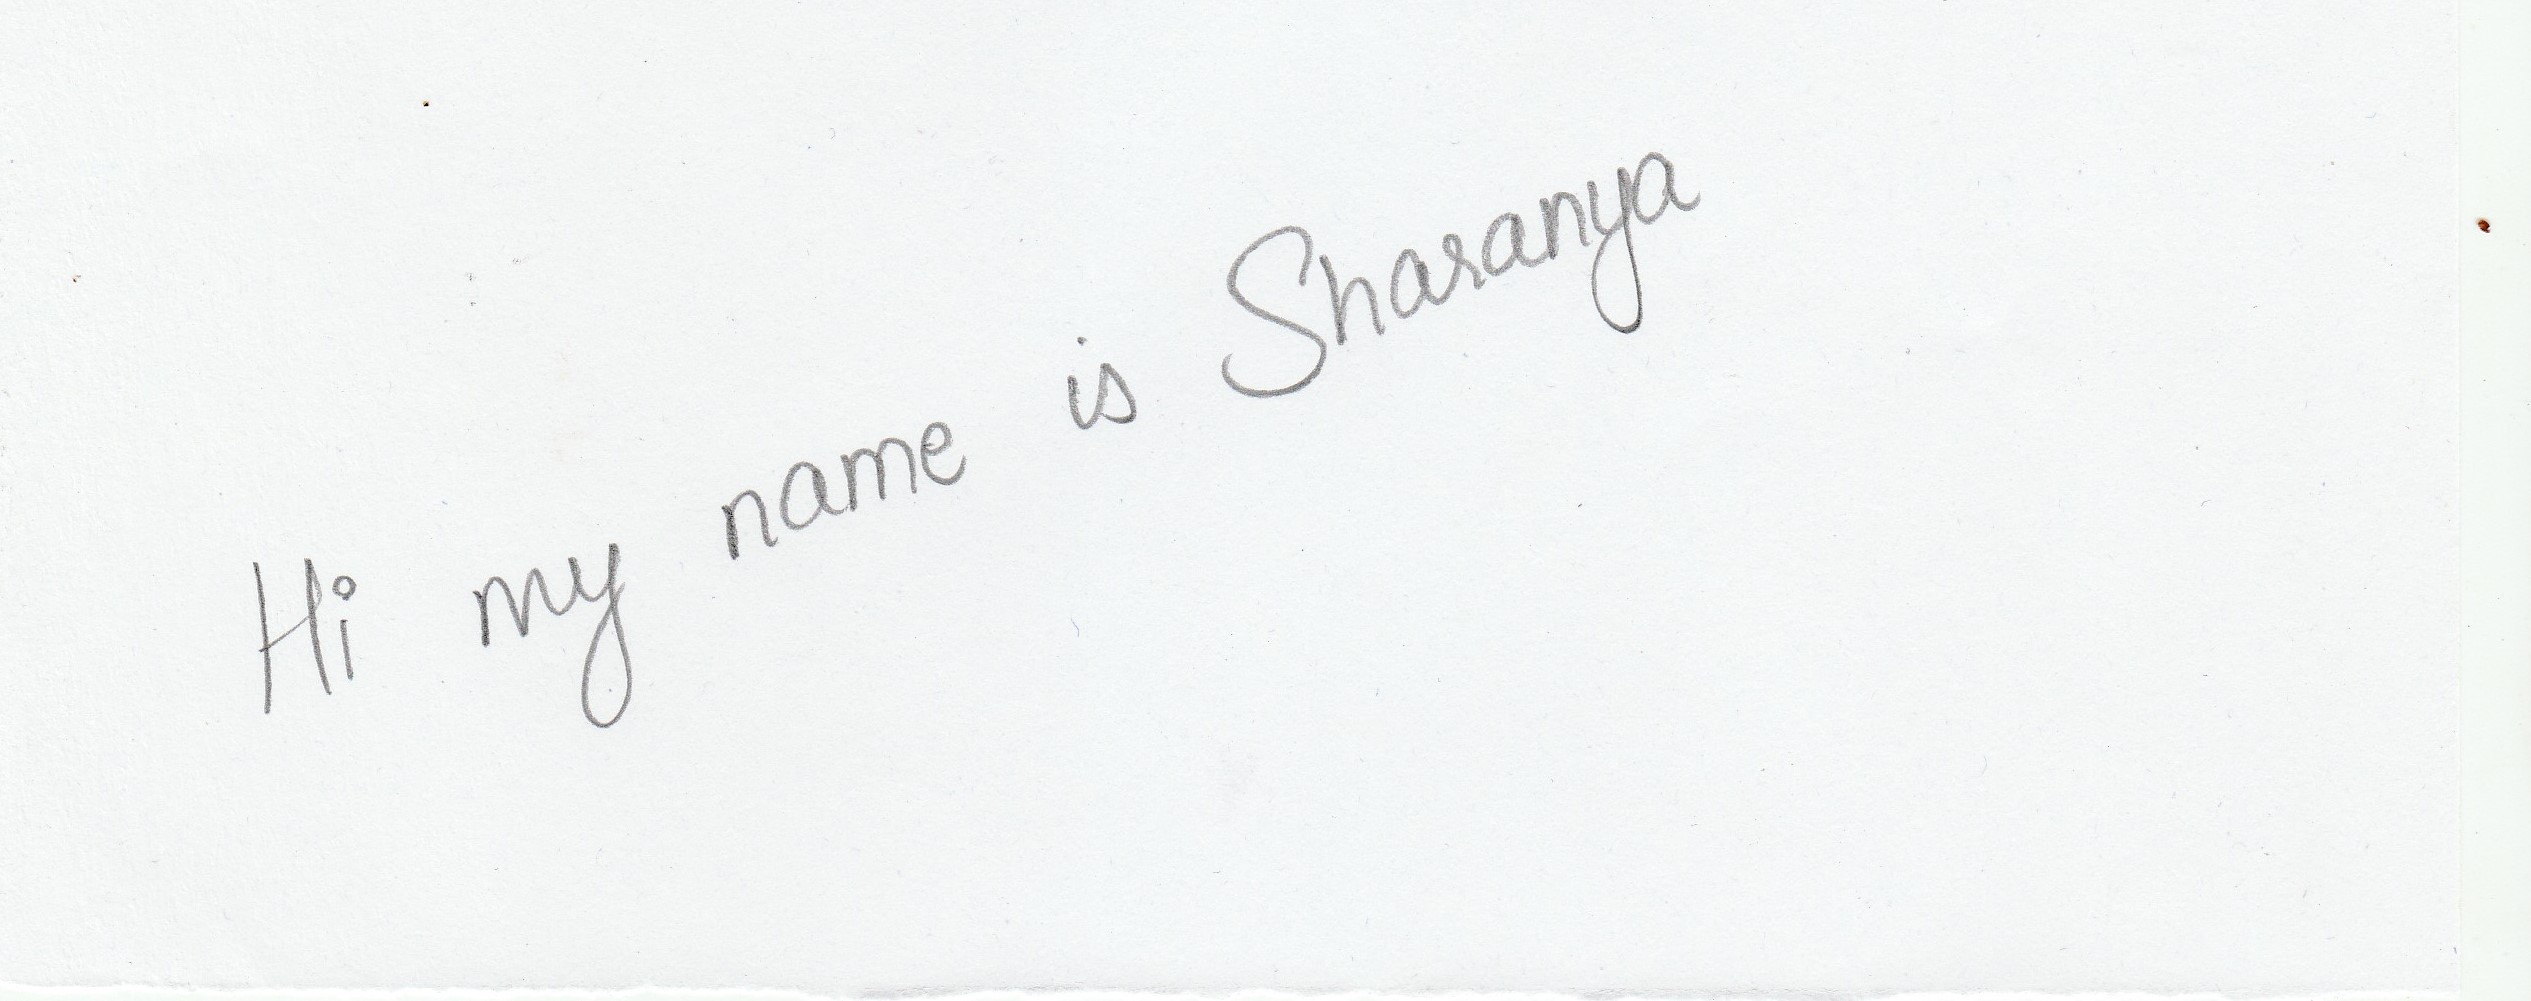 Hi my name is Sharanya